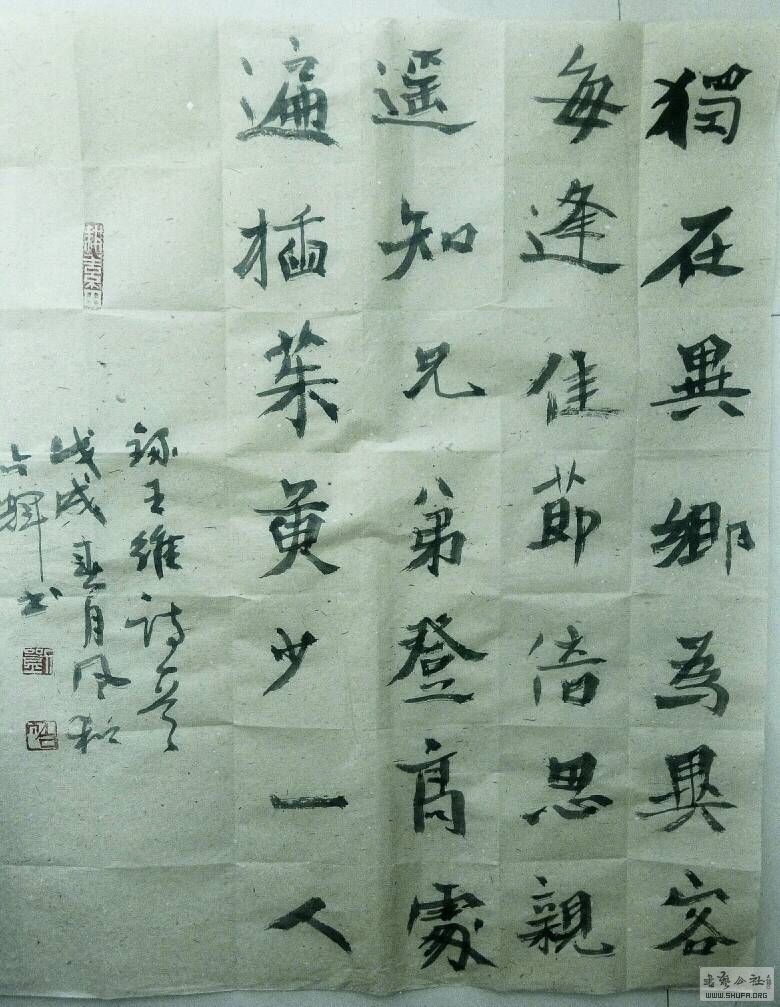 獨在異鄉為異客
每逢佳節倍思親
遥知兄弟登高處
遍插茱萸少一人
錄王維詩一首
戊戌春月風和
占輝书
书艺公社
WWW.SHUFA.ORG